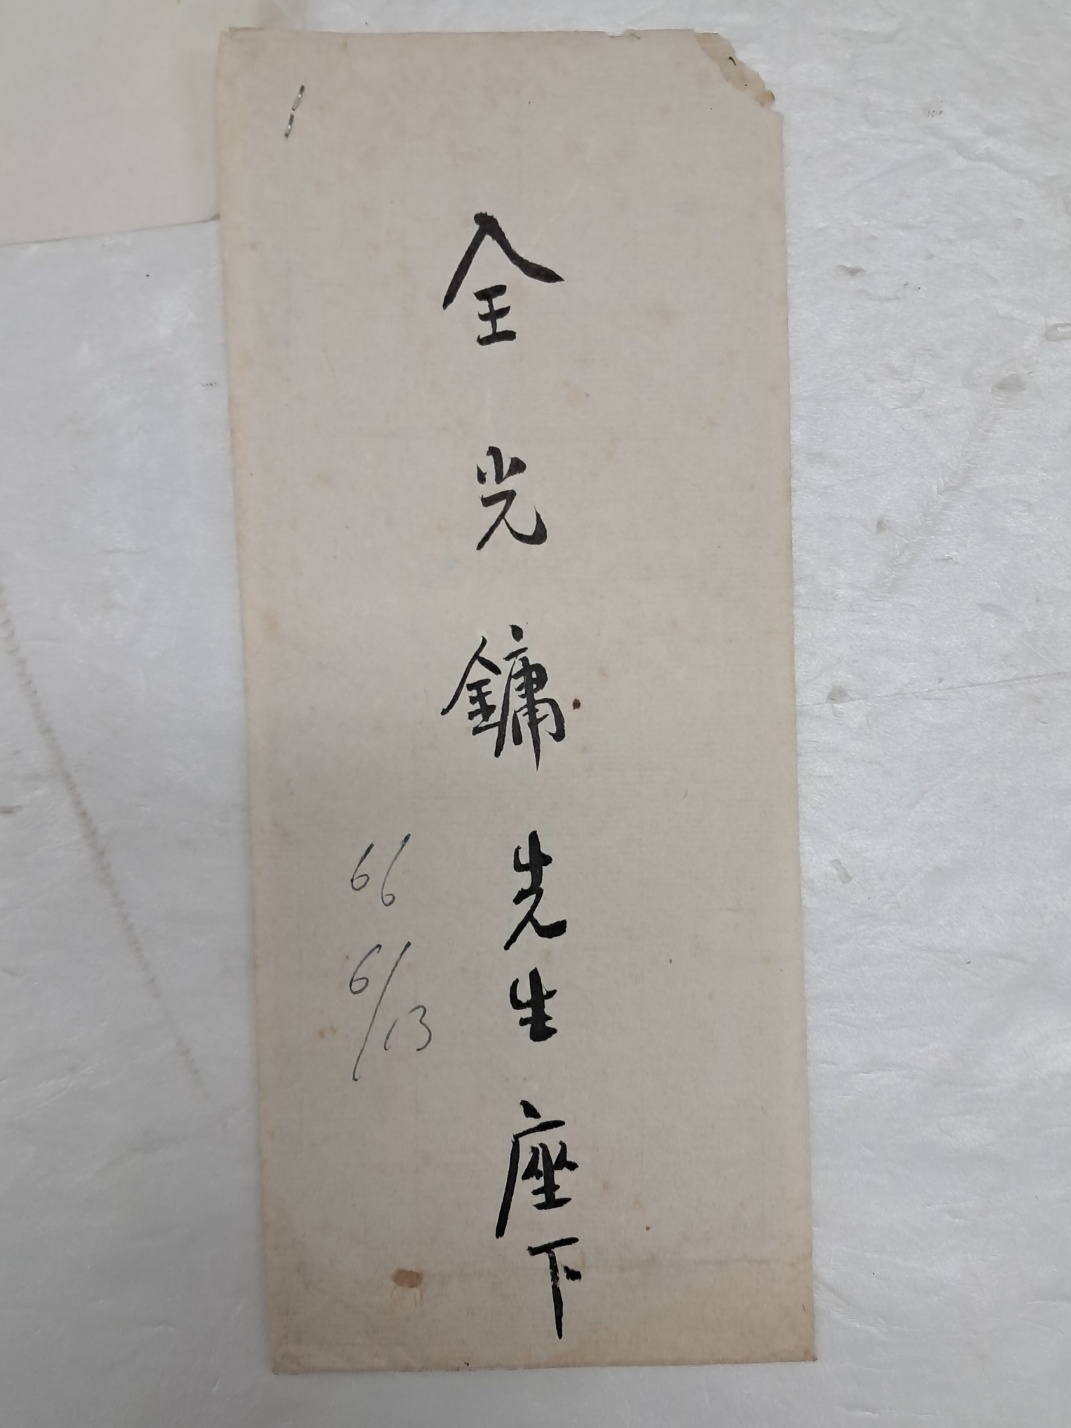 全光鏞先生座下
66
6/13